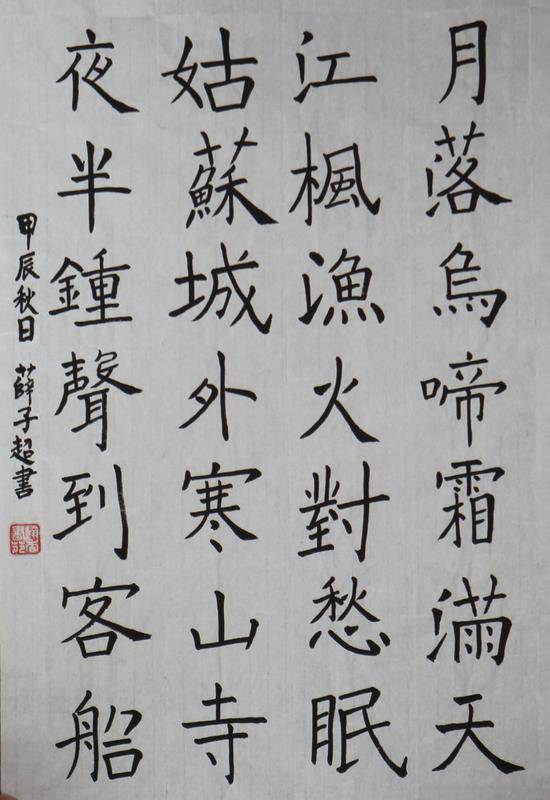 月落烏啼霜滿天
江楓漁火對愁眠
姑蘇城外寒山寺
夜半鍾聲到客船
甲辰秋日 薛子超書